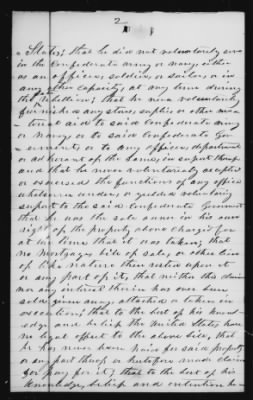 2
States; that he did not voluntarily serve
in the Confederate army or navy, either
as an officer, soldier, or sailor, or in
any other capacity, at any time during
the Rebellion; that he never voluntarily
furnished any stores, supplies or other ma
terial aid to said Confederate army
or navy, or to said Confederate Gov
ernment, or to any officer, department
or adherent of the same, in support thereof
and that he never voluntarily accepted
or exercised the functions of any office
whatsoever under, or yielded voluntary
support to the said Confederate Government
that he was the sole owner in his own
right of the property above charged for
at the time that it was taken; that
no mortgage, bill of sale, or other lien
of like nature then rested upon it
or any part of it, that neither this claim
nor any interest therein has ever been
sold, given away, attached or taken in
execution; that to the best of his knowl-
edge and belief the United States have
no legal offset to the above bill, that
he has never been paid for said property
or any part thereof or heretofore made claim
for pay for it; that to the best of his
knowledge, belief and intention he